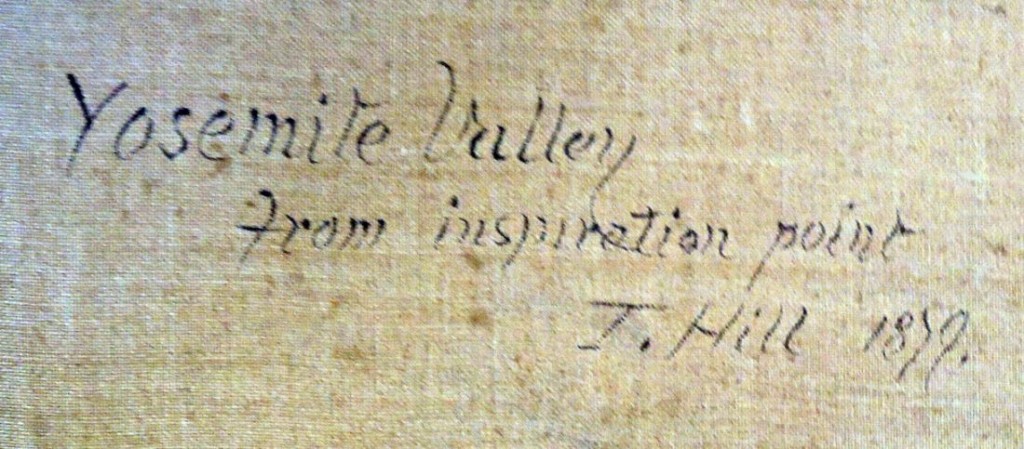 Yosemite Valley
from inspiration point
T. Hill 1879.